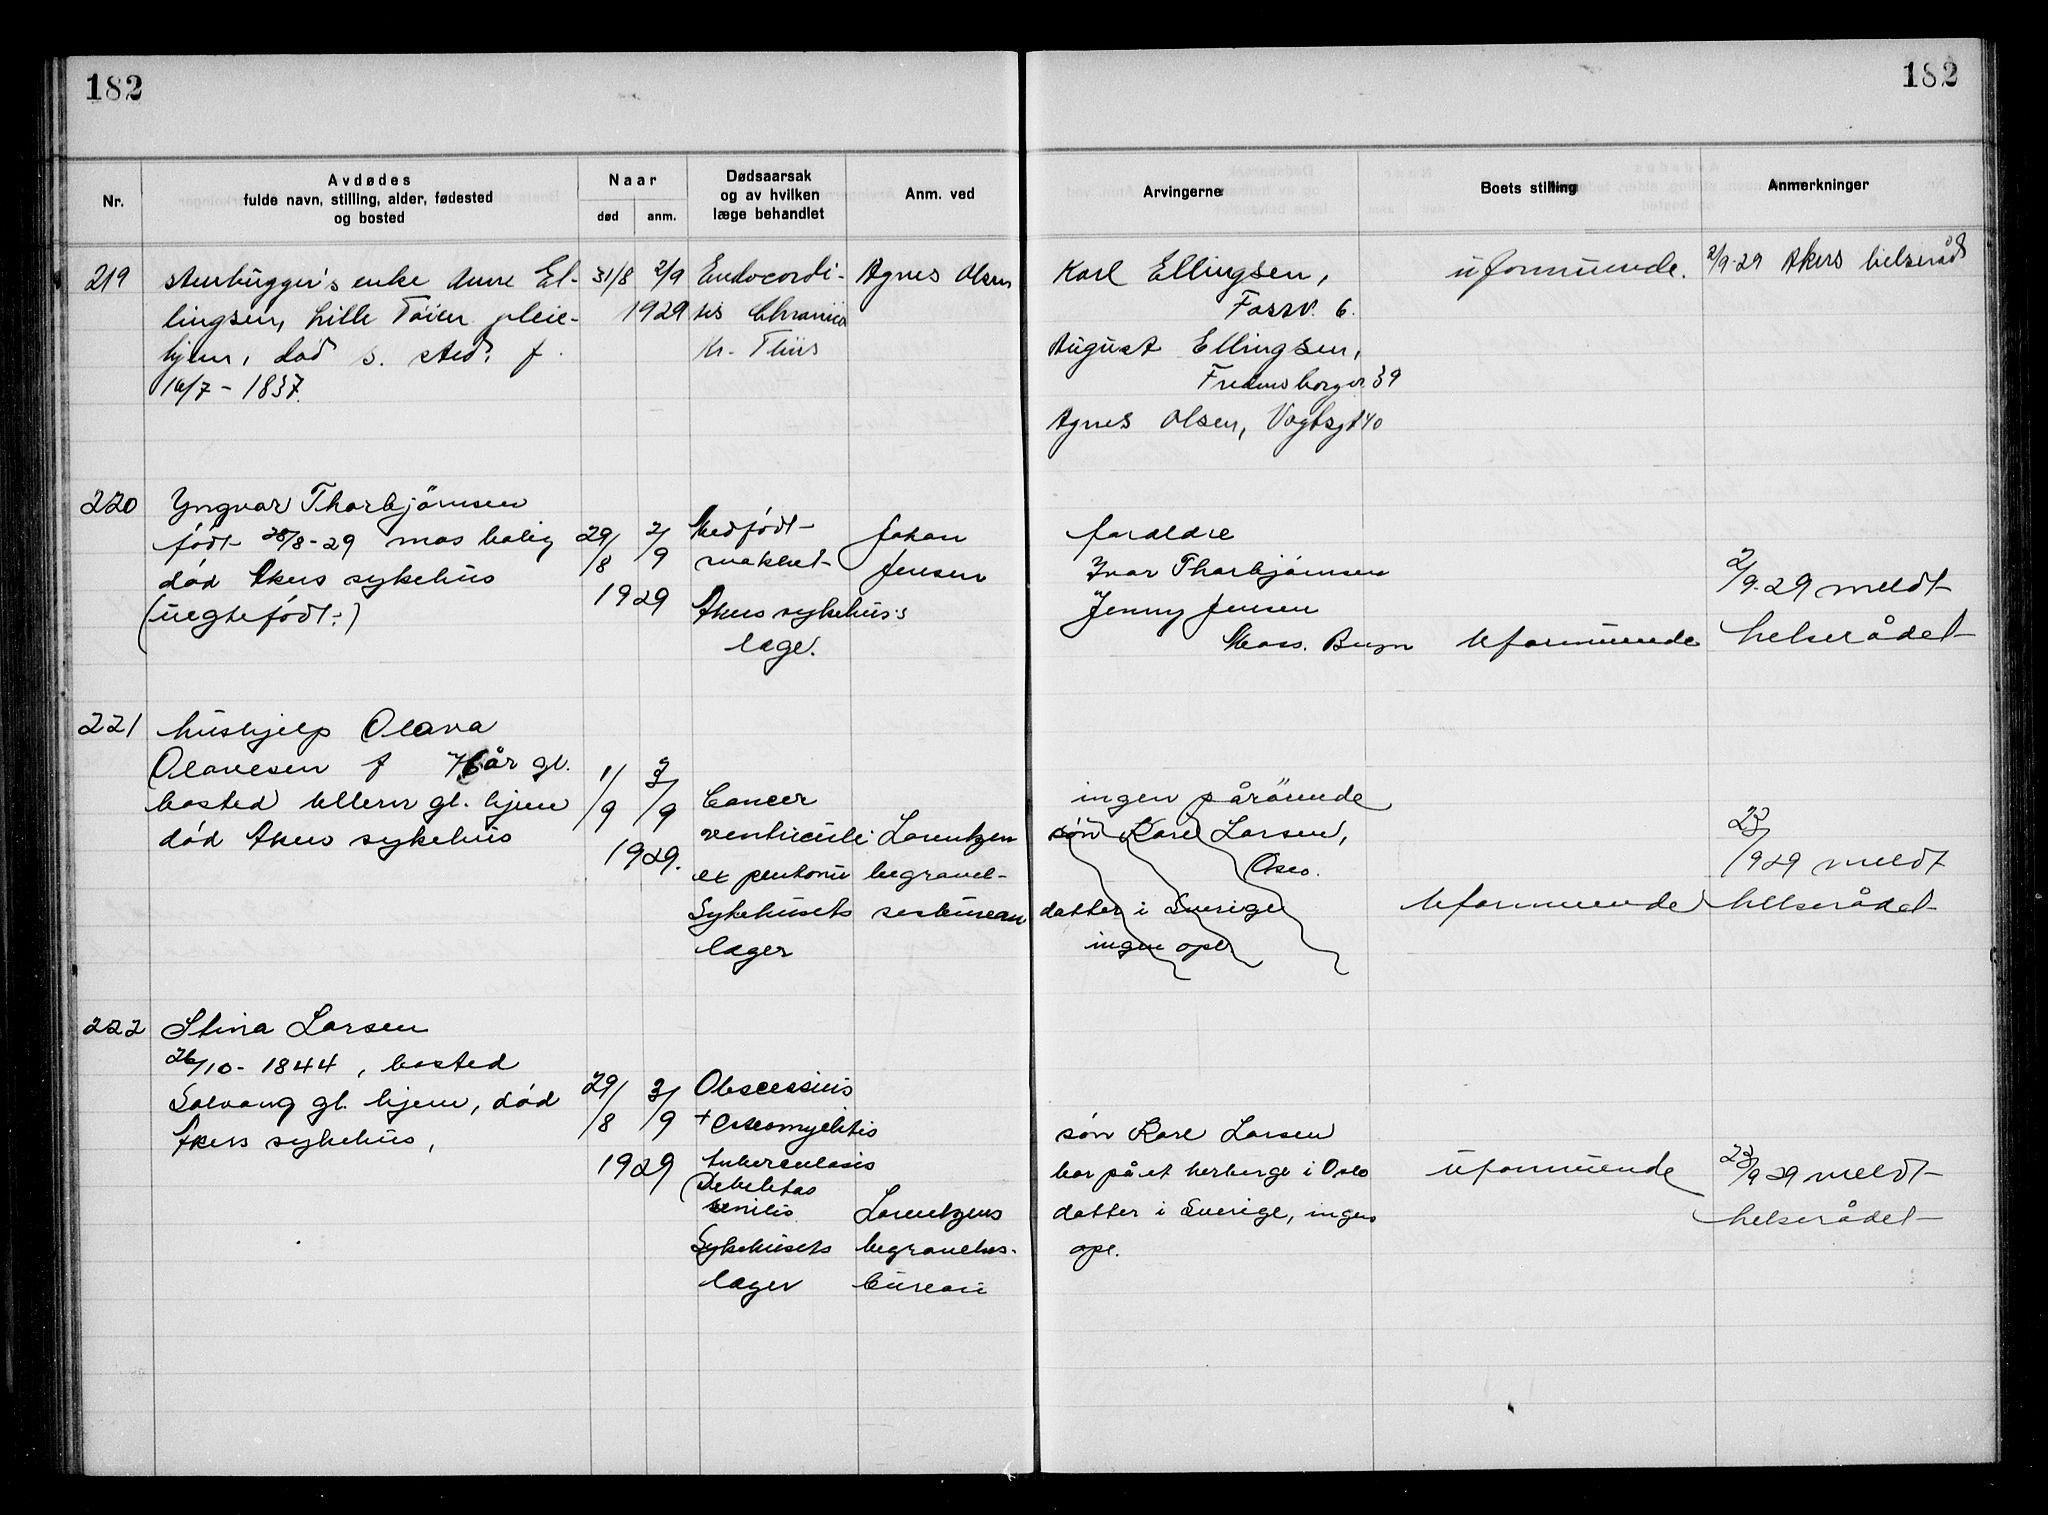 182
182
Nr.
Avdødes
fulde navn, stilling, alder, fødested
og bosted
Naar
død
anm.
Dødsaarsak
og av hvilken
læge behandlet
Anm. ved
Arvingerne
Boets stilling
Anmerkninger
219
stenhugger's enke Anne El-
lingsen, Lille Töien pleie-
hjem, død s. sted. f.
16/7 - 1837.
31/8
2/9
1929
Endocardi-
tis Chronica
Kr. Thiis
Agnes Olsen
Karl Ellingsen,
Fossv. 6.
August Ellingsen,
39
Agnes Olsen, Vogtsgt 40
uformuende.
2/9-29 Akers helseråd
220
Yngvar Thorbjörnsen
födt 28/8-29 mos bolig
död Akers sykehus
(uegtefödt)
29/8
2/9
1929
Medfödt
svakhet
Akers sykehus's
læge.
Johan
Jensen
foreldre
Ivar Thorbjörnsen
Jenny Jensen
Moss. Buyn
Uformuende
2/9-29 meldt
helserådet
221
hushjelp Olava
Olavesen f 76 år gl.
bosted Ullern gl. hjem
död Akers sykehus
1/9
3/9
1929.
Cancer
ventriculi
et peritonii
Sykehusets
læger
Lorentzen
begravel-
sesbureau
ingen pårörende
søn Karl Larsen,
Oslo.
datter i Sverige
ingen opl
Uformuende
23/9 29 meldt
helserådet
222
Stina Larsen
26/10-1844, bosted
Solvang gl. hjem, död
Akers sykehus,
29/8
3/9
1929
+ Osteomyelitis
tuberculosis
Debilitas
senilis
Sykehusets
læger
Lorentzens
begravelses-
bureau
søn Karl Larsen
bor på et herberge i Oslo
datter i Sverige, ingen
opl.
uformuende
23/9 29 meldt
helserådet